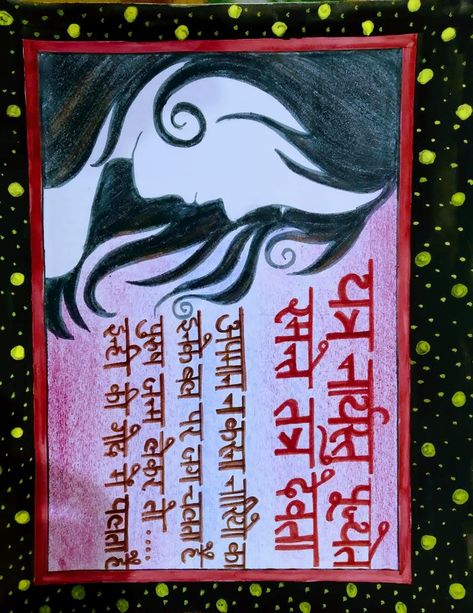 यत्र नार्यस्तु पूज्यते
रमन्ते तत्र देवता
अपमान न करना नारियों का
इनके बल पर जग चलता हैं
पुरुष जन्म लेकर तो ....
इन्ही की गोद में पलता हैं